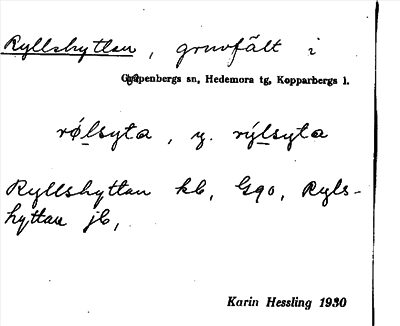 Ryllshyttan, gruvfält i
Garpenbergs sn, Hedemora tg, Kopparbergs l.
rø̀lsyta, y. rýlsyta
Ryllshyttan kb, Gqo, Ryls-
hyttan jb,
Karin Hessling 1930